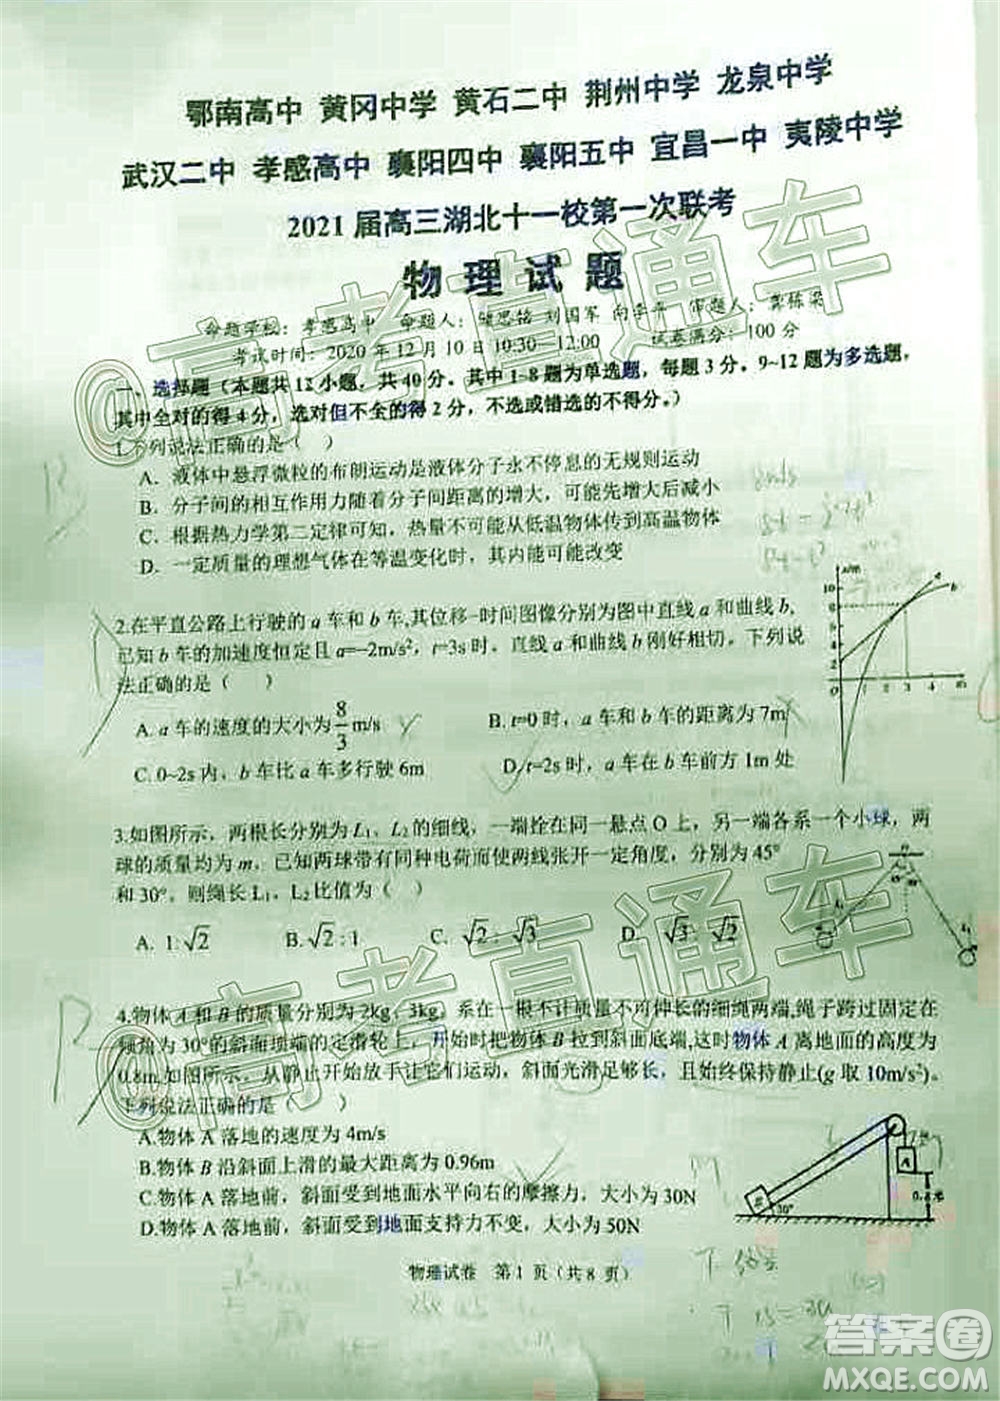 鄂南高中 黄冈中学 黄石二中 荆州中学 龙泉中学
武汉二中 孝感高中 襄阳四中 襄阳五中 宜昌一中 夷陵中学
2021 届高三湖北十一校第一次联考
物 理 试 题
命题学校：孝感高中 命题人： 刘国军 审题人：
考试时间：2020 年 12 月 10 日 10:30—12:00 试卷满分：100 分
一、选择题（本题共 12 小题，共 40 分。其中 1-8 题为单选题，每题 3 分。9~12 题为多选题，
其中全对的得 4 分，选对但不全的得 2 分，不选或错选的不得分。）
1.下列说法正确的是（ ）
A．液体中悬浮微粒的布朗运动是液体分子永不停息的无规则运动
B．分子间的相互作用力随着分子间距离的增大，可能先增大后减小
C．根据热力学第二定律可知，热量不可能从低温物体传到高温物体
D．一定质量的理想气体在等温变化时，其内能可能改变
2.在平直公路上行驶的 a 车和 b 车,其位移-时间图像分别为图中直线 a 和曲线 b,
已知 b 车的加速度恒定且 a=-2m/s², t=3s时，直线 a 和曲线 b 刚好相切，下列说
法正确的是（ ）
A. a 车的速度的大小为 8/3 m/s B. t=0 时，a 车和 b 车的距离为 7m
C. 0~2s 内，b 车比 a 车多行驶 6m D. t=2s 时，a 车在 b 车前方 1m 处
x/m
10
8
6
4
2
0 1 2 3 4 5
a
b
3.如图所示，两根长分别为 L₁、L₂ 的细线，一端拴在同一悬点 O 上，另一端各系一个小球，两
球的质量均为 m，已知两球带有同种电荷而使两线张开一定角度，分别为 45°
和 30°。则绳长 L₁，L₂ 比值为（ ）
A. 1:√2 B. √2 : 1 C. √2 : √3 D. √3 : √2
4.物体 A 和 B 的质量分别为 2kg、3kg，系在一根不计质量不可伸长的细绳两端,绳子跨过固定在
倾角为 30°的斜面顶端的定滑轮上，开始时把物体 B 拉到斜面底端,这时物体 A 离地面的高度为
0.8m,如图所示，从静止开始放手让它们运动，斜面光滑足够长，且始终保持静止(g 取 10m/s²)。
下列说法正确的是（ ）
A.物体 A 落地的速度为 4m/s
B.物体 B 沿斜面上滑的最大距离为 0.96m
C.物体 A 落地前，斜面受到地面水平向右的摩擦力，大小为 30N
D.物体 A 落地前，斜面受到地面支持力不变，大小为 50N
A
B
30°
物理试卷 第 1 页（共 8 页）
@高考直通车
@高考直通车
答案圈
MXQE.COM